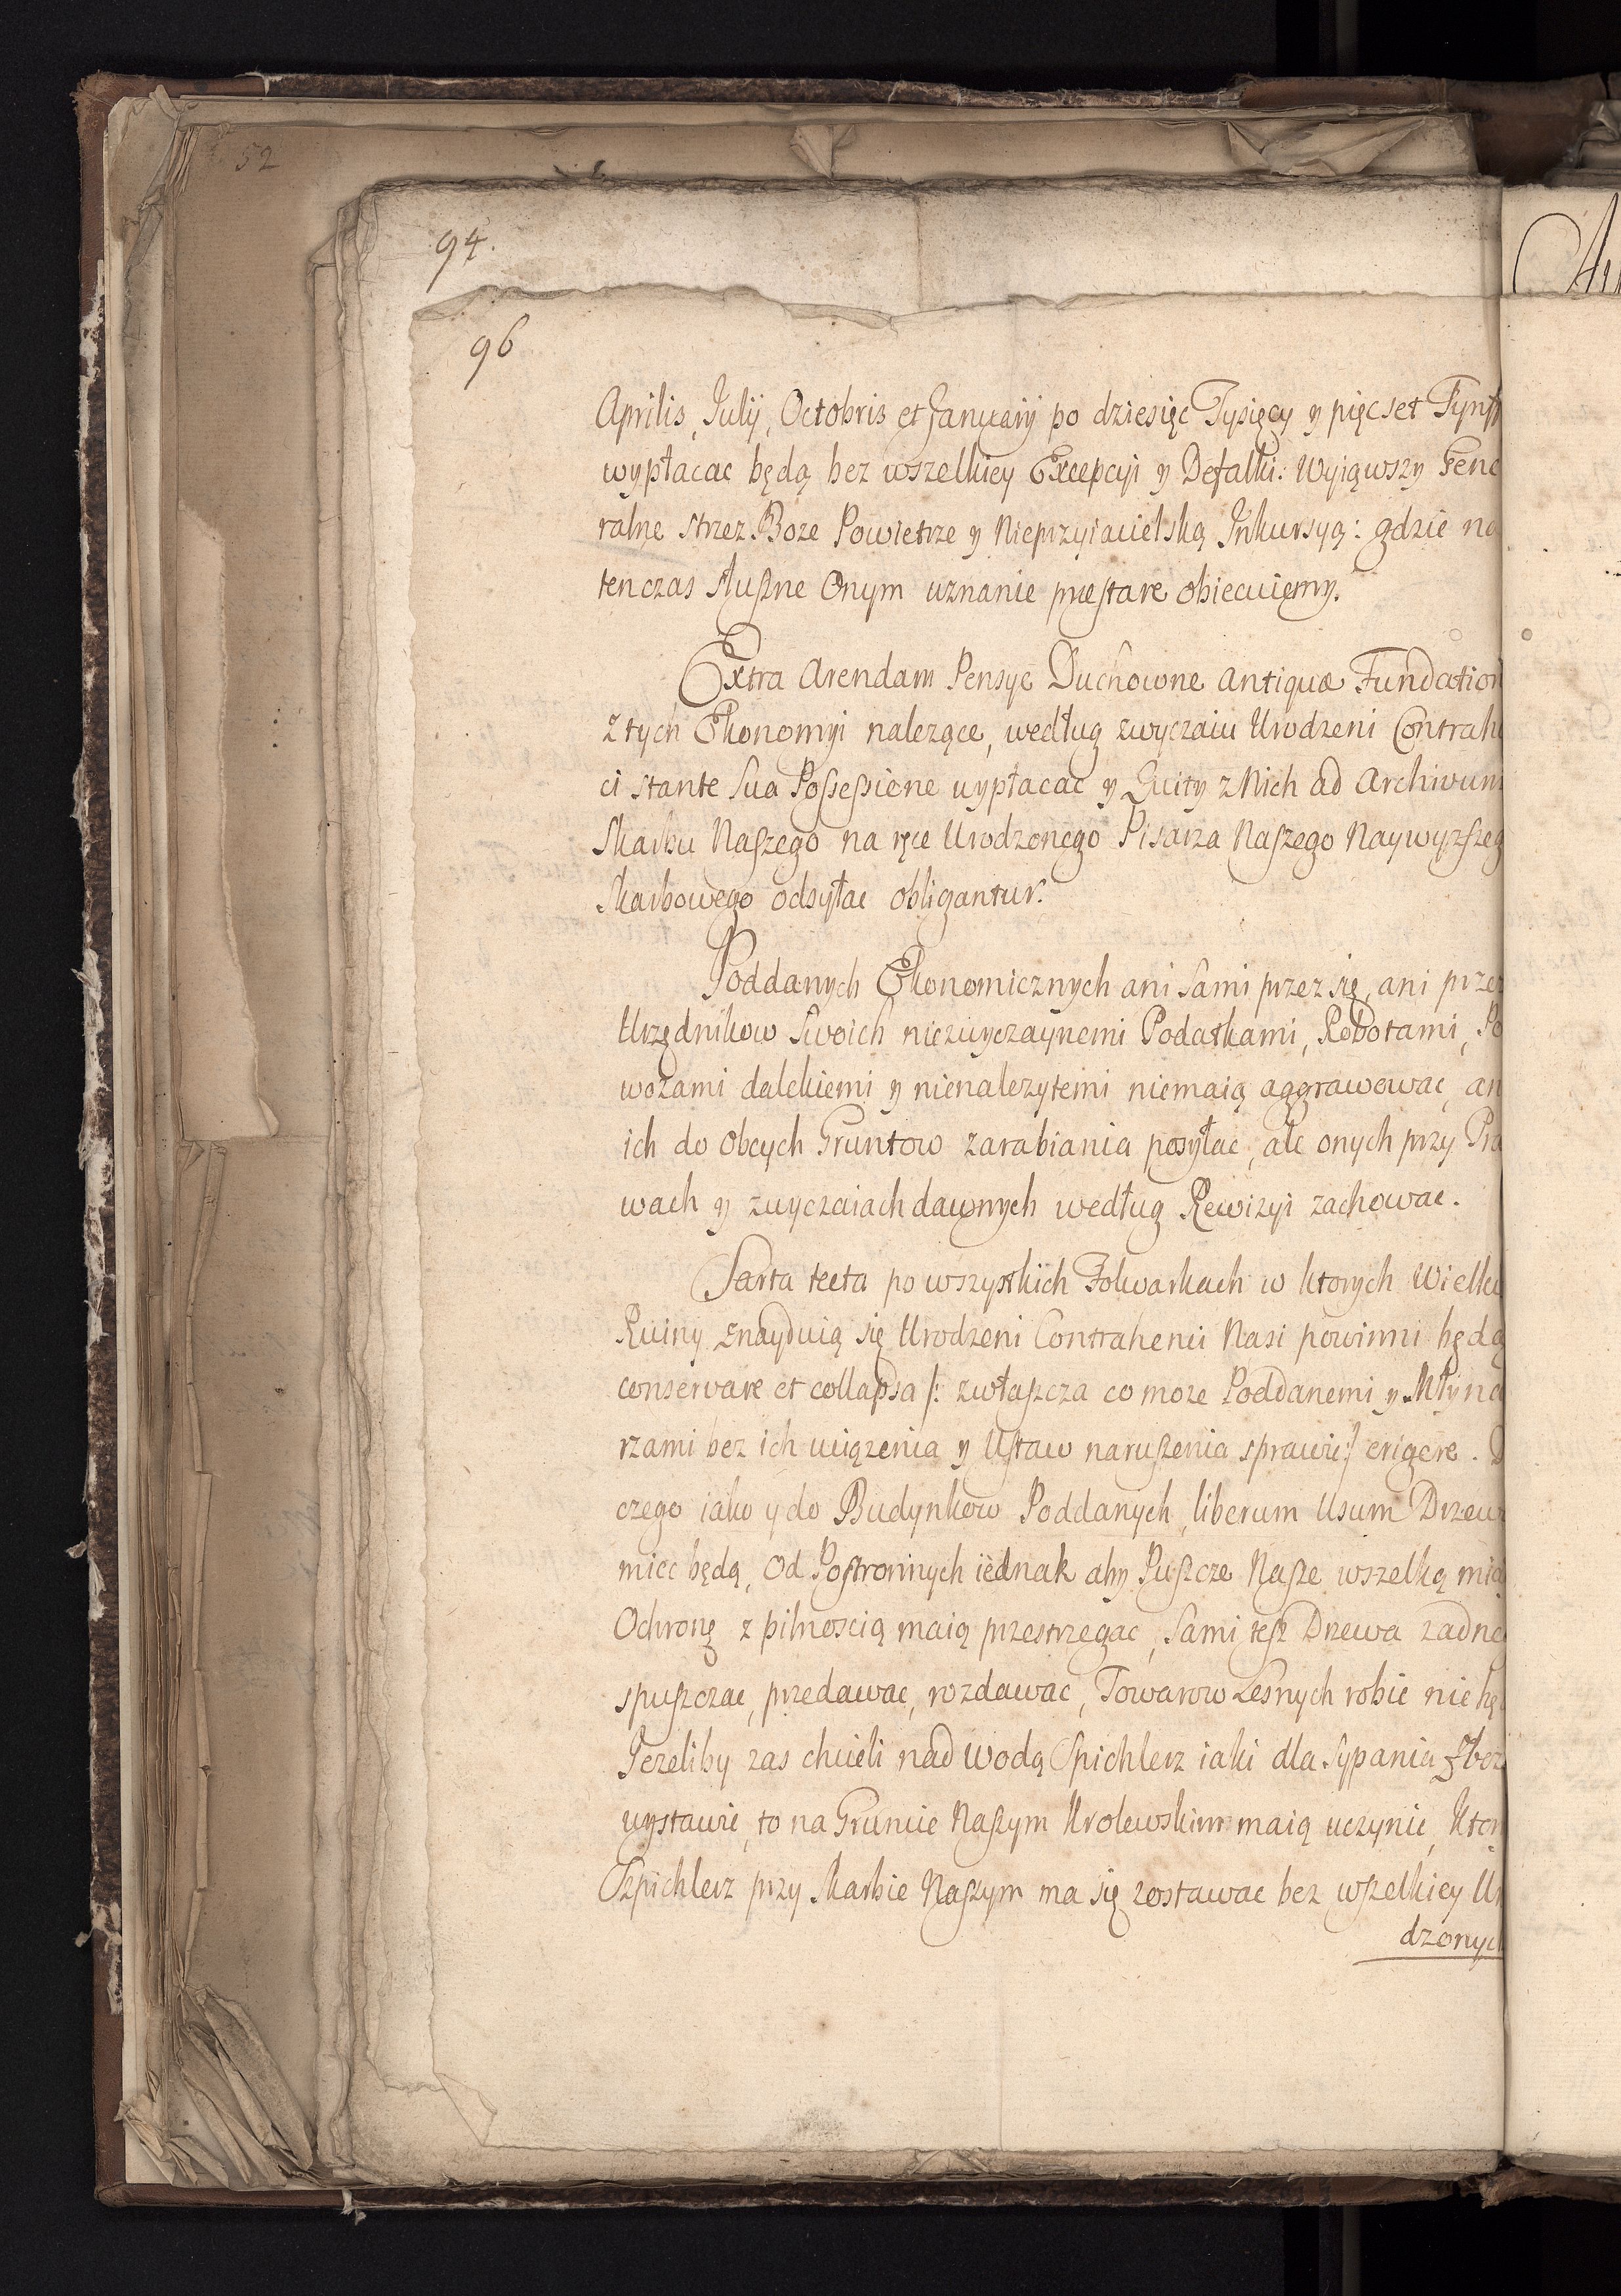 52
94.
96
Aprilis, Julij, Octobris et Januarij po dziesięc Tysięcy y pięcset Tynff
wypłacac będą bez wszelkiey Excepcyi y Defalki: Wyiąwszy Gene
ralne strzez Boze Powietrze y Nieprzyiacielską Inkursyą: gdzie na
tenczas słuszne Onym uznanie præstare obiecuiemy.
Extra Arendam Pensye Duchowne Antiquæ Fundation
z tych Ekonomyi nalezące, według zwyczaiu Urodzeni Contrahe
ci stante sua Possessione wypłacac y Quity z Nich ad Archivum
Skarbu Naszego na ręce Urodzonego Pisarza Naszego Naywyzszeg
Skarbowego odsyłac obligantur.
Poddanych Ekonomicznych ani sami przez się, ani przez
Urzędnikow swoich niezwyczaynemi Podatkami, Robotami, Po
wozami dalekiemi y nienalezytemi niemaią aggrawowac, an
ich do obcych Gruntow zarabiania posyłac, ale onych przy Pra
wach y zwyczaiach dawnych według Rewizyi zachowac.
Sarta tecta po wszystkich Folwarkach w ktorych Wielki
Ruiny znayduią się Urodzeni Contrahenci Nasi powinni będą
conservare et collapsa /: zwłaszcza co moze Poddanemi y Młyna
rzami bez ich uciązenia y Ustaw naruszenia sprawic :/ erigere. D
czego iako y do Budynkow Poddanych, liberum Usum Drzew
miec będą, Od Postronnych iednak aby Puszcze Nasze wszelką mia
Ochronę z pilnoscią maią przestrzegac, sami tesz Drzewa zadne
spuszczac, przedawac, rozdawac, Towarow Lesnych robic nie bę
Jezeliby zas chcieli nad wodą Spichlerz iaki dla sypania Zboz
wystawic, to na Gruncie Naszym Krolewskim maią uczynic, Ktor
Szpichlerz przy Skarbie Naszym ma się zostawac bez wszelkiey Ur
dzonych